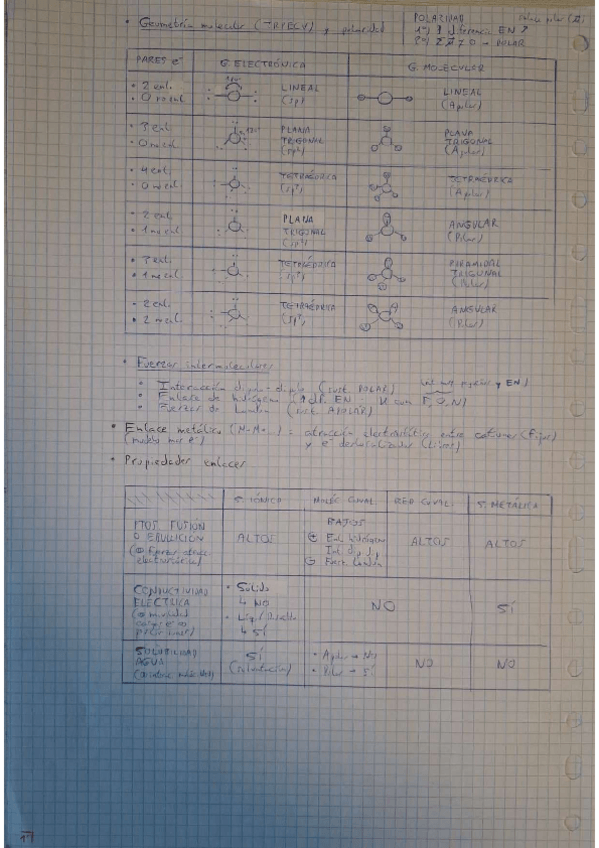 • Geometría molecular (TRPECV) y polaridad
POLARIDAD
1º) diferencia EN
2º) ≠ 0 → POLAR
PARES e⁻
G. ELECTRÓNICA
G. MOLECULAR
• 2 enl.
• 0 no enl.
LINEAL
(sp)
LINEAL
(Apolar)
• 3 enl.
• 0 no enl.
PLANA
TRIGONAL
(sp²)
PLANA
TRIGONAL
(Apolar)
• 4 enl.
• 0 no enl.
TETRAÉDRICA
(sp³)
TETRAÉDRICA
(Apolar)
• 2 enl.
• 1 no enl.
PLANA
TRIGONAL
(sp²)
ANGULAR
(Polar)
• 3 enl.
• 1 no enl.
TETRAÉDRICA
(sp³)
PIRAMIDAL
TRIGONAL
(Polar)
• 2 enl.
• 2 no enl.
TETRAÉDRICA
(sp³)
ANGULAR
(Polar)
• Fuerzas intermoleculares
• Interacción dipolo-dipolo (sust POLAR)
• Enlace de hidrógeno (↑ dif. EN: H con F, O, N)
• Fuerzas de London (sust APOLAR)
• Enlace metálico (M-M) = atracción electrostática entre cationes (Fijos)
(modelo mar e⁻) y e⁻ deslocalizados (Libres)
• Propiedades enlaces
S. IÓNICO
MOLÉC. COVAL.
RED COVAL.
S. METÁLICA
PTOS. FUSIÓN
O EBULLICIÓN
(Fuerzas atrac.
electrostática)
ALTOS
BAJOS
⊕ Enl. hidrógeno
Int. dip-dip
⊖ Fuerz. London
ALTOS
ALTOS
CONDUCTIVIDAD
ELÉCTRICA
• Sólido
↳ NO
• Líq/Disuelto
↳ SÍ
NO
SÍ
SOLUBILIDAD
AGUA
SÍ
(Solvatación)
• Apolar → No
• Polar → SÍ
NO
NO
17